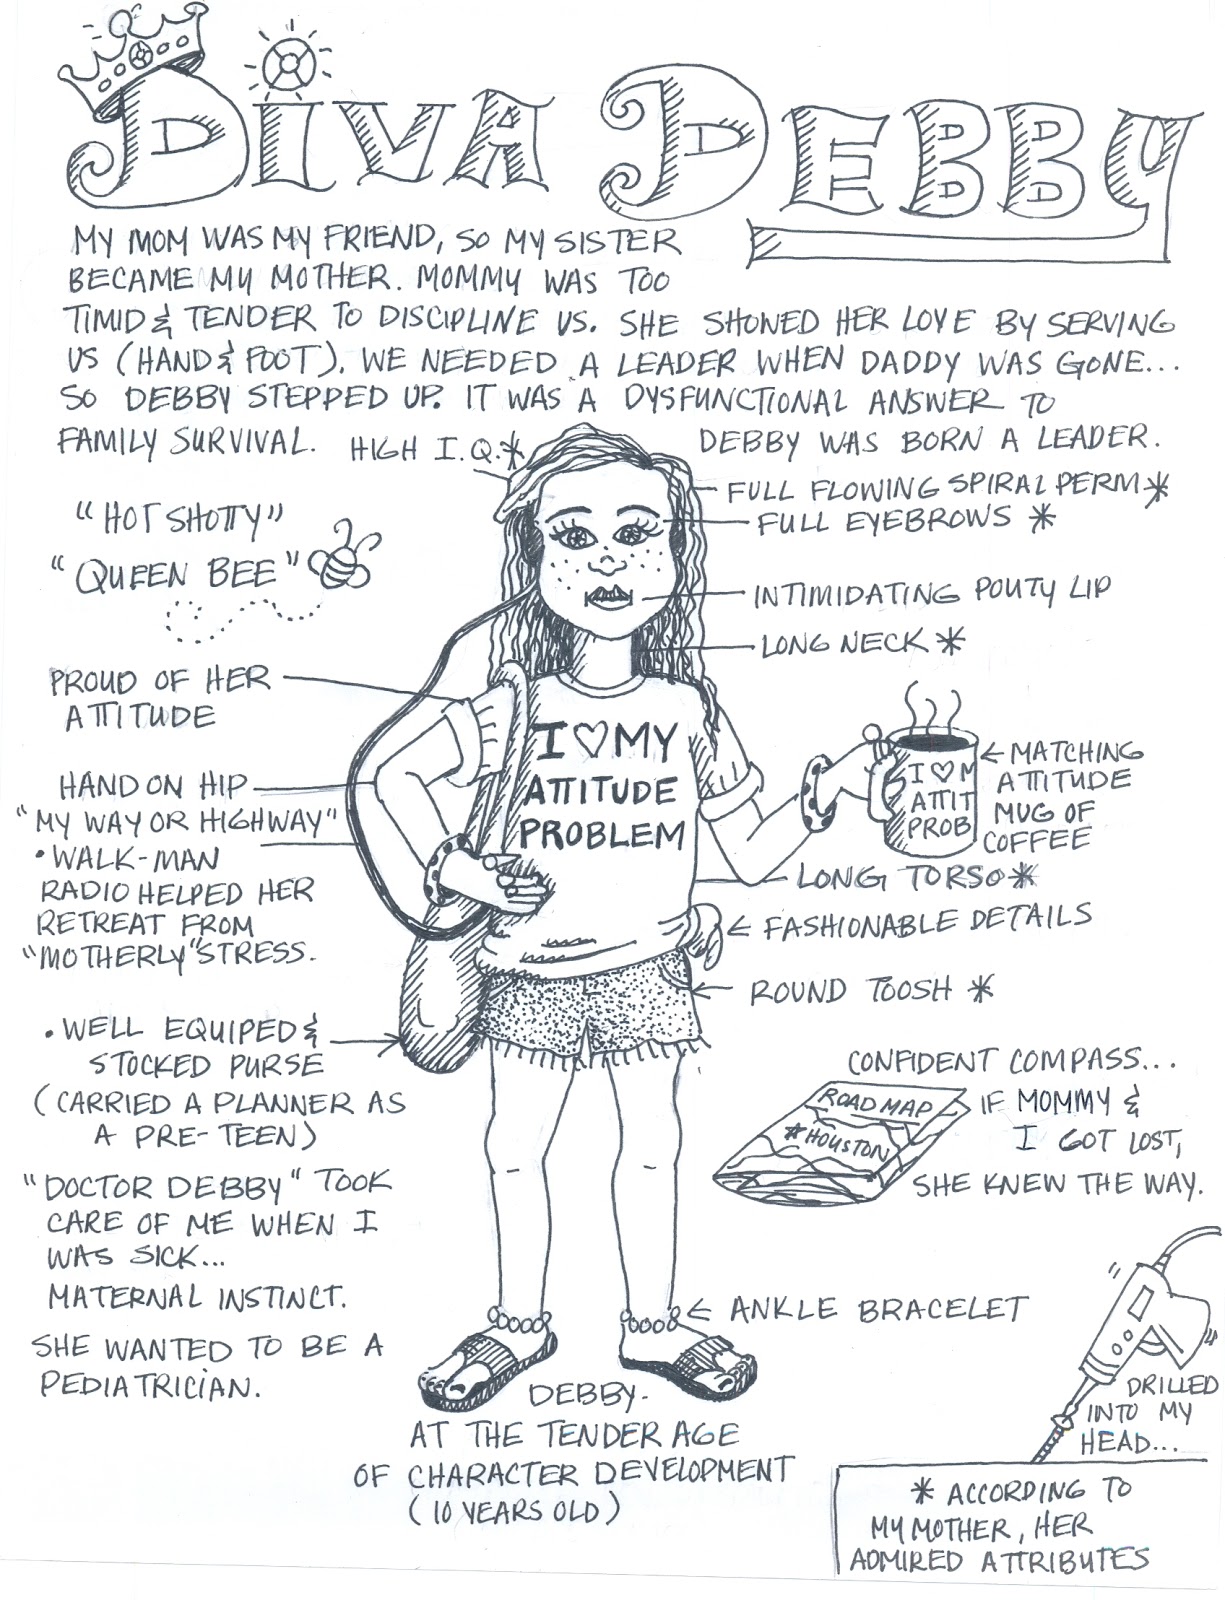 DIVA DEBBY
MY MOM WAS MY FRIEND, SO MY SISTER
BECAME MY MOTHER. MOMMY WAS TOO
TIMID & TENDER TO DISCIPLINE US. SHE SHOWED HER LOVE BY SERVING
US (HAND & FOOT). WE NEEDED A LEADER WHEN DADDY WAS GONE...
SO DEBBY STEPPED UP. IT WAS A DYSFUNCTIONAL ANSWER TO
FAMILY SURVIVAL.
DEBBY WAS BORN A LEADER.
HIGH I.Q.*
FULL FLOWING SPIRAL PERM*
FULL EYEBROWS *
"HOT SHOTTY"
"QUEEN BEE"
INTIMIDATING POUTY LIP
LONG NECK *
PROUD OF HER
ATTITUDE
I ♡ MY
ATTITUDE
PROBLEM
I ♡ M
ATTIT
PROB
MATCHING
ATTITUDE
MUG OF
COFFEE
HAND ON HIP
"MY WAY OR HIGHWAY"
• WALK-MAN
RADIO HELPED HER
RETREAT FROM
"MOTHERLY" STRESS.
LONG TORSO *
FASHIONABLE DETAILS
ROUND TOOSH *
• WELL EQUIPED &
STOCKED PURSE
(CARRIED A PLANNER AS
A PRE-TEEN)
CONFIDENT COMPASS...
IF MOMMY &
I GOT LOST,
SHE KNEW THE WAY.
ROAD MAP
*HOUSTON
"DOCTOR DEBBY" TOOK
CARE OF ME WHEN I
WAS SICK...
MATERNAL INSTINCT.
SHE WANTED TO BE A
PEDIATRICIAN.
ANKLE BRACELET
DEBBY-
AT THE TENDER AGE
OF CHARACTER DEVELOPMENT
(10 YEARS OLD)
DRILLED
INTO MY
HEAD...
* ACCORDING TO
MY MOTHER, HER
ADMIRED ATTRIBUTES